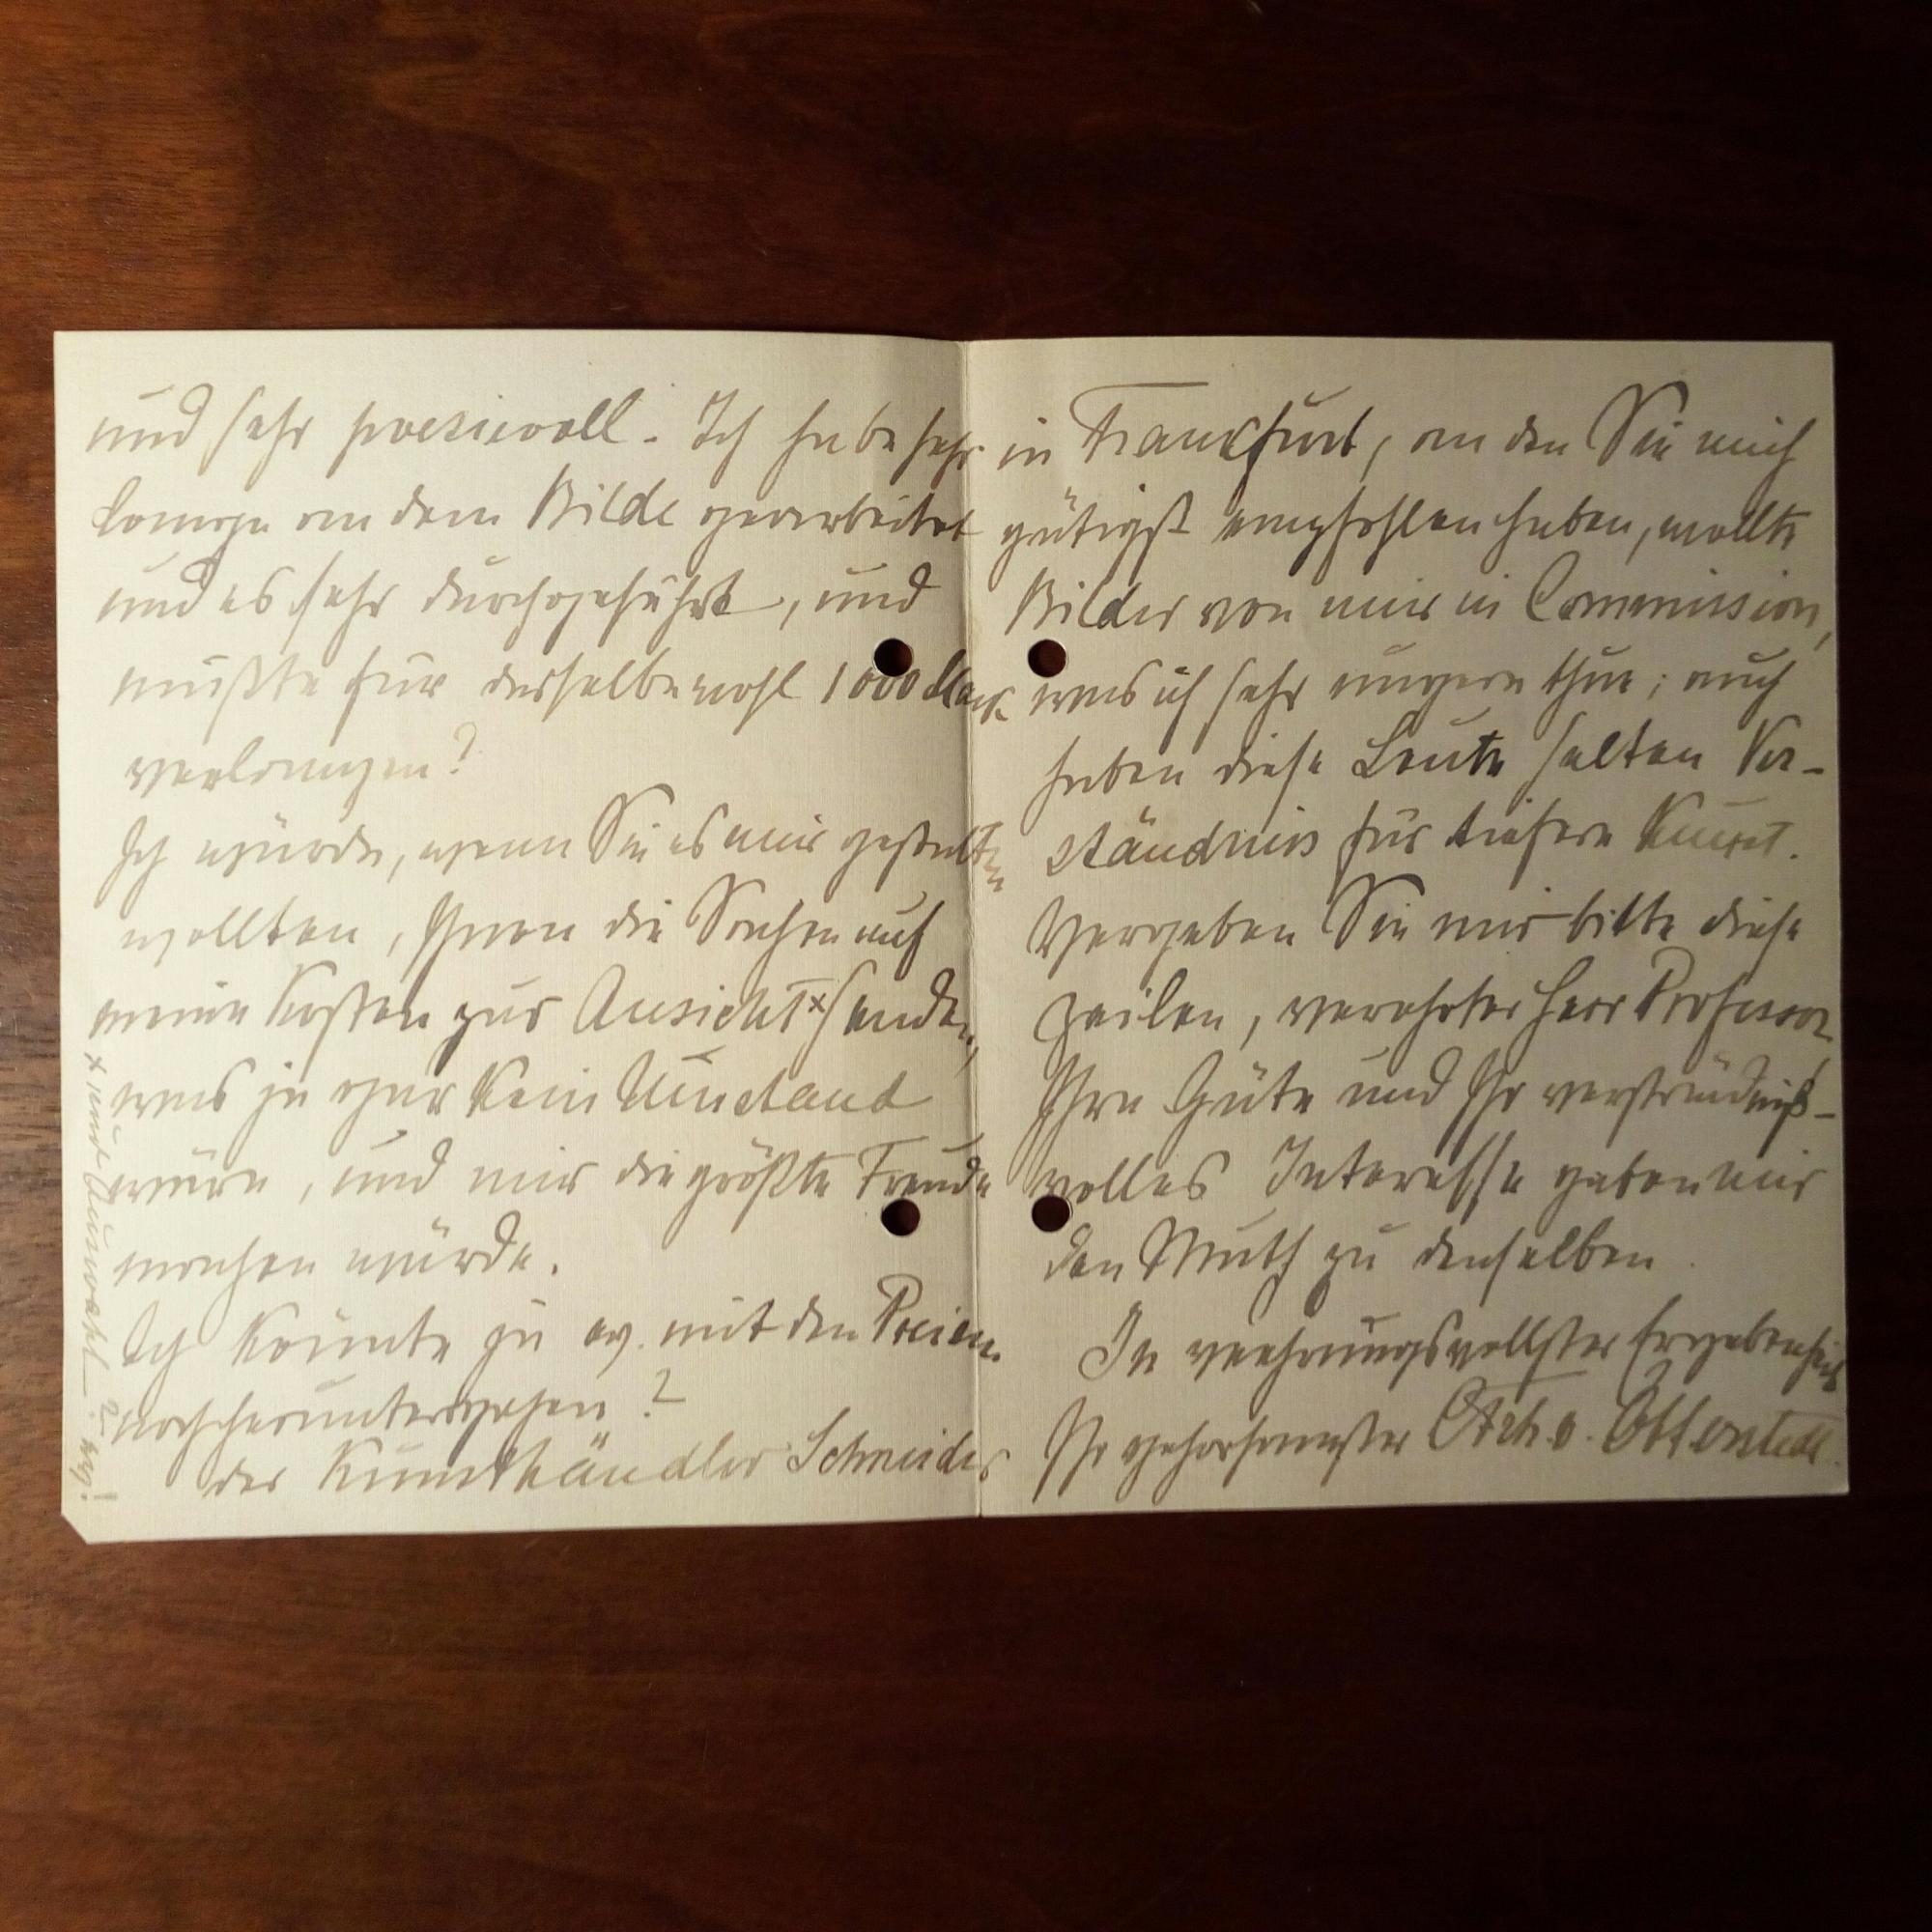 und sehr poesievoll. Ich habe sehr
lange an dem Bilde gearbeitet
und es sehr durchgeführt, und
müßte für dasselbe wohl 1000 Mark
verlangen?
Ich würde, wenn Sie es mir gestatten
wollten, Ihnen die Sachen auf
meine Kosten zur Ansicht x senden,
was ja gar kein Umstand
wäre, und mir die größte Freude
machen würde.
Ich könnte ja ev. mit den Preisen
noch heruntergehen?
der Kunsthändler Schneider
x und Auswahl
in Frankfurt, an den Sie mich
gütigst empfohlen haben, wollte
Bilder von mir in Commission,
was ich sehr ungern thue; auch
haben diese Leute selten Ver-
ständnis für tiefere Kunst.
Vergeben Sie mir bitte diese
Zeilen, verehrter Herr Professor,
Ihre Güte und Ihr verständniß-
volles Interesse gaben mir
den Muth zu denselben.
In verehrungsvollster Ergebenheit
Ihr gehorsamster v. Otterstedt.